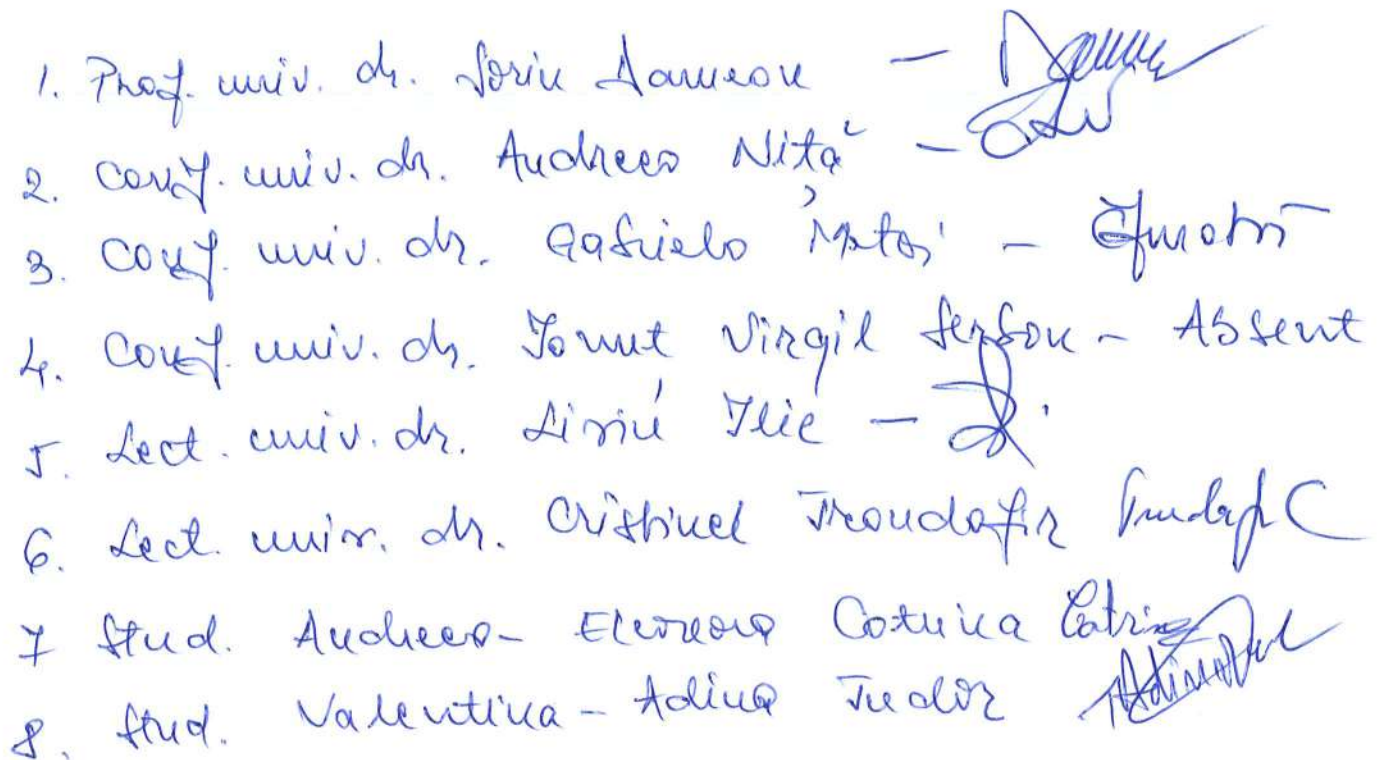 1. Prof. univ. dr. Sorin Damean -
2. Conf. univ. dr. Andreea Niță -
3. Conf. univ. dr. Gabriela Motoi -
4. Conf. univ. dr. Ionuț Virgil Șerban - Absent
5. Lect. univ. dr. Liviu Ilie -
6. Lect. univ. dr. Cristinel Trandafir
7 Stud. Andreea - Eleonora Catrina Catrina
8. Stud. Valentina - Adina Tudor